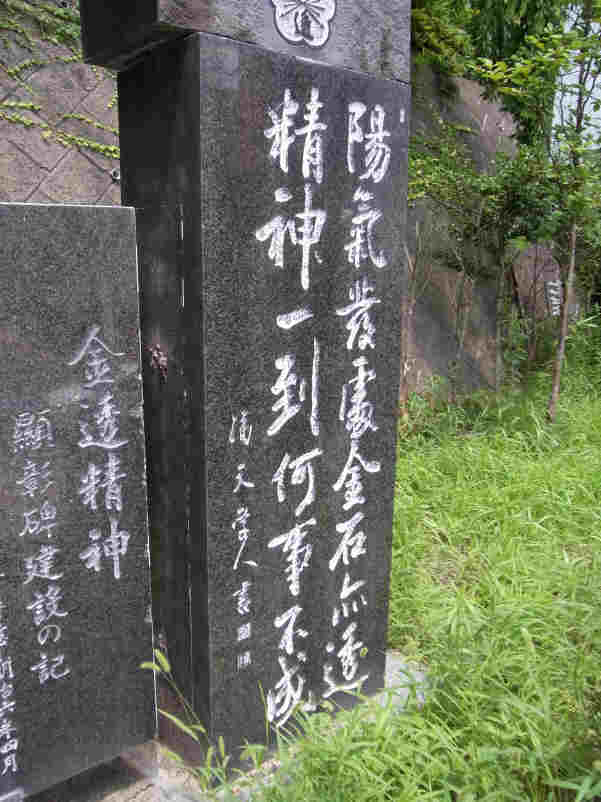 陽氣發處金石亦透
精神一到何事不成
天學人書
金透精神
顯彰碑建設の記
年四月